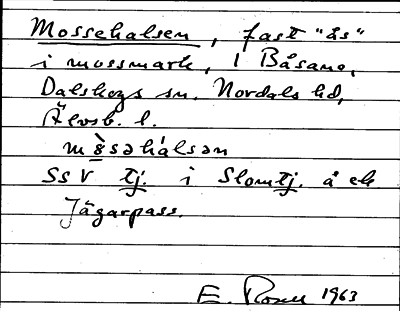 Mossehalsen, fast "ås"
i mossmark, 1 Båsane,
Dalskogs sn. Nordals hd,
Älvsb. l.
mòsəhálsən
SSV tj. i Slomtj. å ek
Jägarpass.
E. 1963